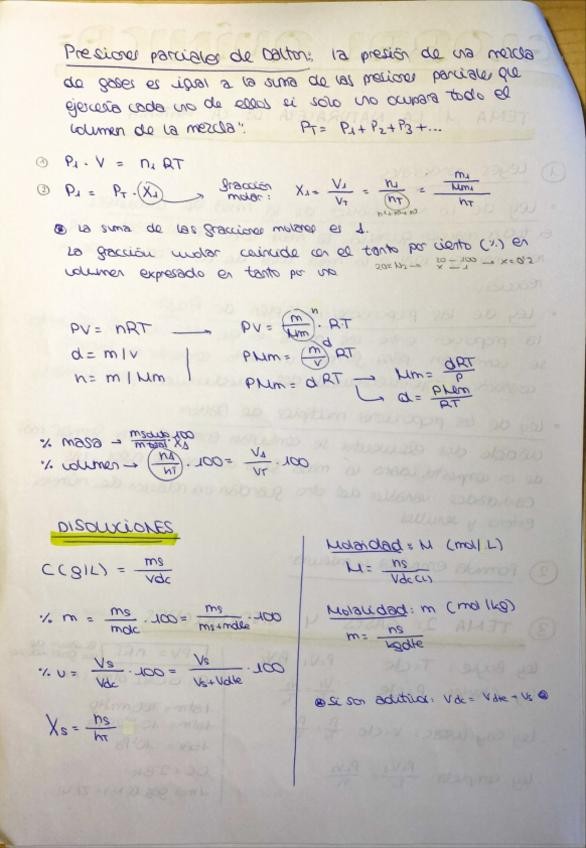 Presiones parciales de Dalton: "la presión de una mezcla
de gases es igual a la suma de las presiones parciales que
ejercería cada uno de ellos si sólo uno ocupara todo el
volumen de la mezcla".  PT = P1 + P2 + P3 + ...
① P1 · V = n1 RT
② P1 = PT · X1 → fracción molar: X1 = V1/VT = n1/nT = (m1/Mm1)/nT
n1+n2+n3
La suma de las fracciones molares es 1.
La fracción molar coincide con el tanto por ciento (%) en
volumen expresado en tanto por uno
20% N2 → 20 - 100 → x = 0'2
x - 1
PV = nRT → PV = (m/Mm) n · RT
d = m/v  PMm = (m/v) d RT
n = m/Mm  PMm = dRT → Mm = dRT/P
↳ d = PMm/RT
% volumen → (n1/nT) · 100 = V1/VT · 100
DISOLUCIONES
C(g/L) = ms/Vdc
% m = ms/mdc · 100 = ms/(ms+mdte) · 100
% v = Vs/Vdc · 100 = Vs/(Vs+Vdte) · 100
Xs = ns/nT
Molaridad = M (mol/L)
M = ns/Vdc(L)
Molalidad: m (mol/kg)
m = ns/kgdte
Si son aditivos: Vdc = Vdte + Vs